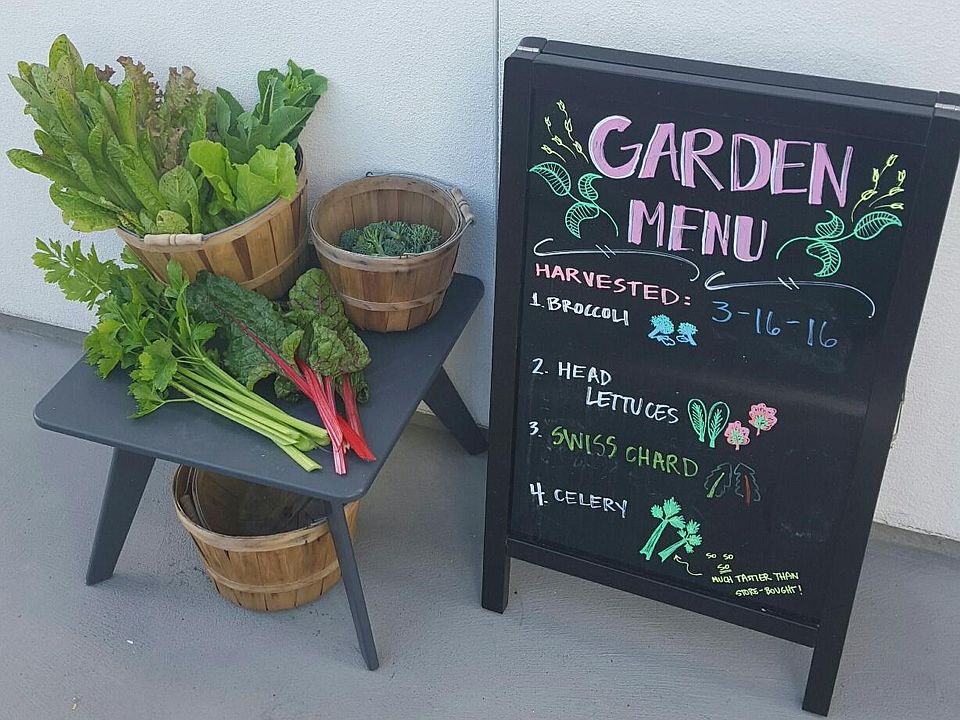 GARDEN
MENU
HARVESTED: 3-16-16
1. BROCCOLI
2. HEAD
LETTUCES
3. SWISS CHARD
4. CELERY
SO SO
SO
MUCH TASTIER THAN
STORE-BOUGHT!